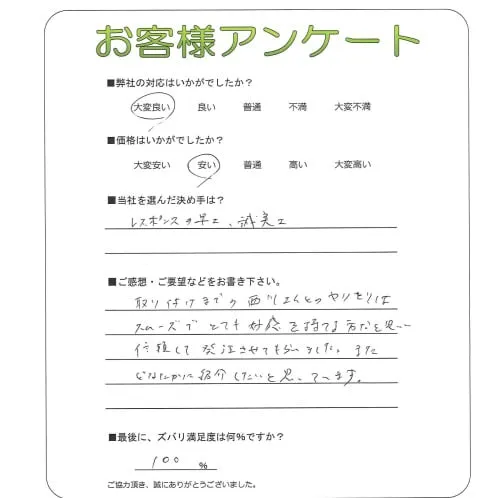 お客様アンケート
■弊社の対応はいかがでしたか？
大変良い 良い 普通 不満 大変不満
■価格はいかがでしたか？
大変安い 安い 普通 高い 大変高い
■当社を選んだ決め手は？
レスポンスの早エ、誠実エ
■ご感想・ご要望などをお書き下さい。
取り付けまでの西川さんとのやりとりは
スムーズでとても好感を持てる方だと思い
信頼して発注させてもらいました。また
どなたかに紹介したいと思っています。
■最後に、ズバリ満足度は何%ですか？
100 %
ご協力頂き、誠にありがとうございました。